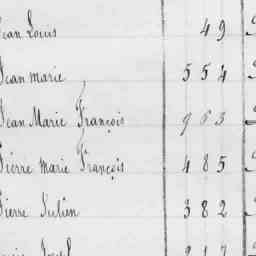 Jean Louis 49
Jean marie 554
Jean Marie François 963
Pierre marie François 485
Pierre Julien 382